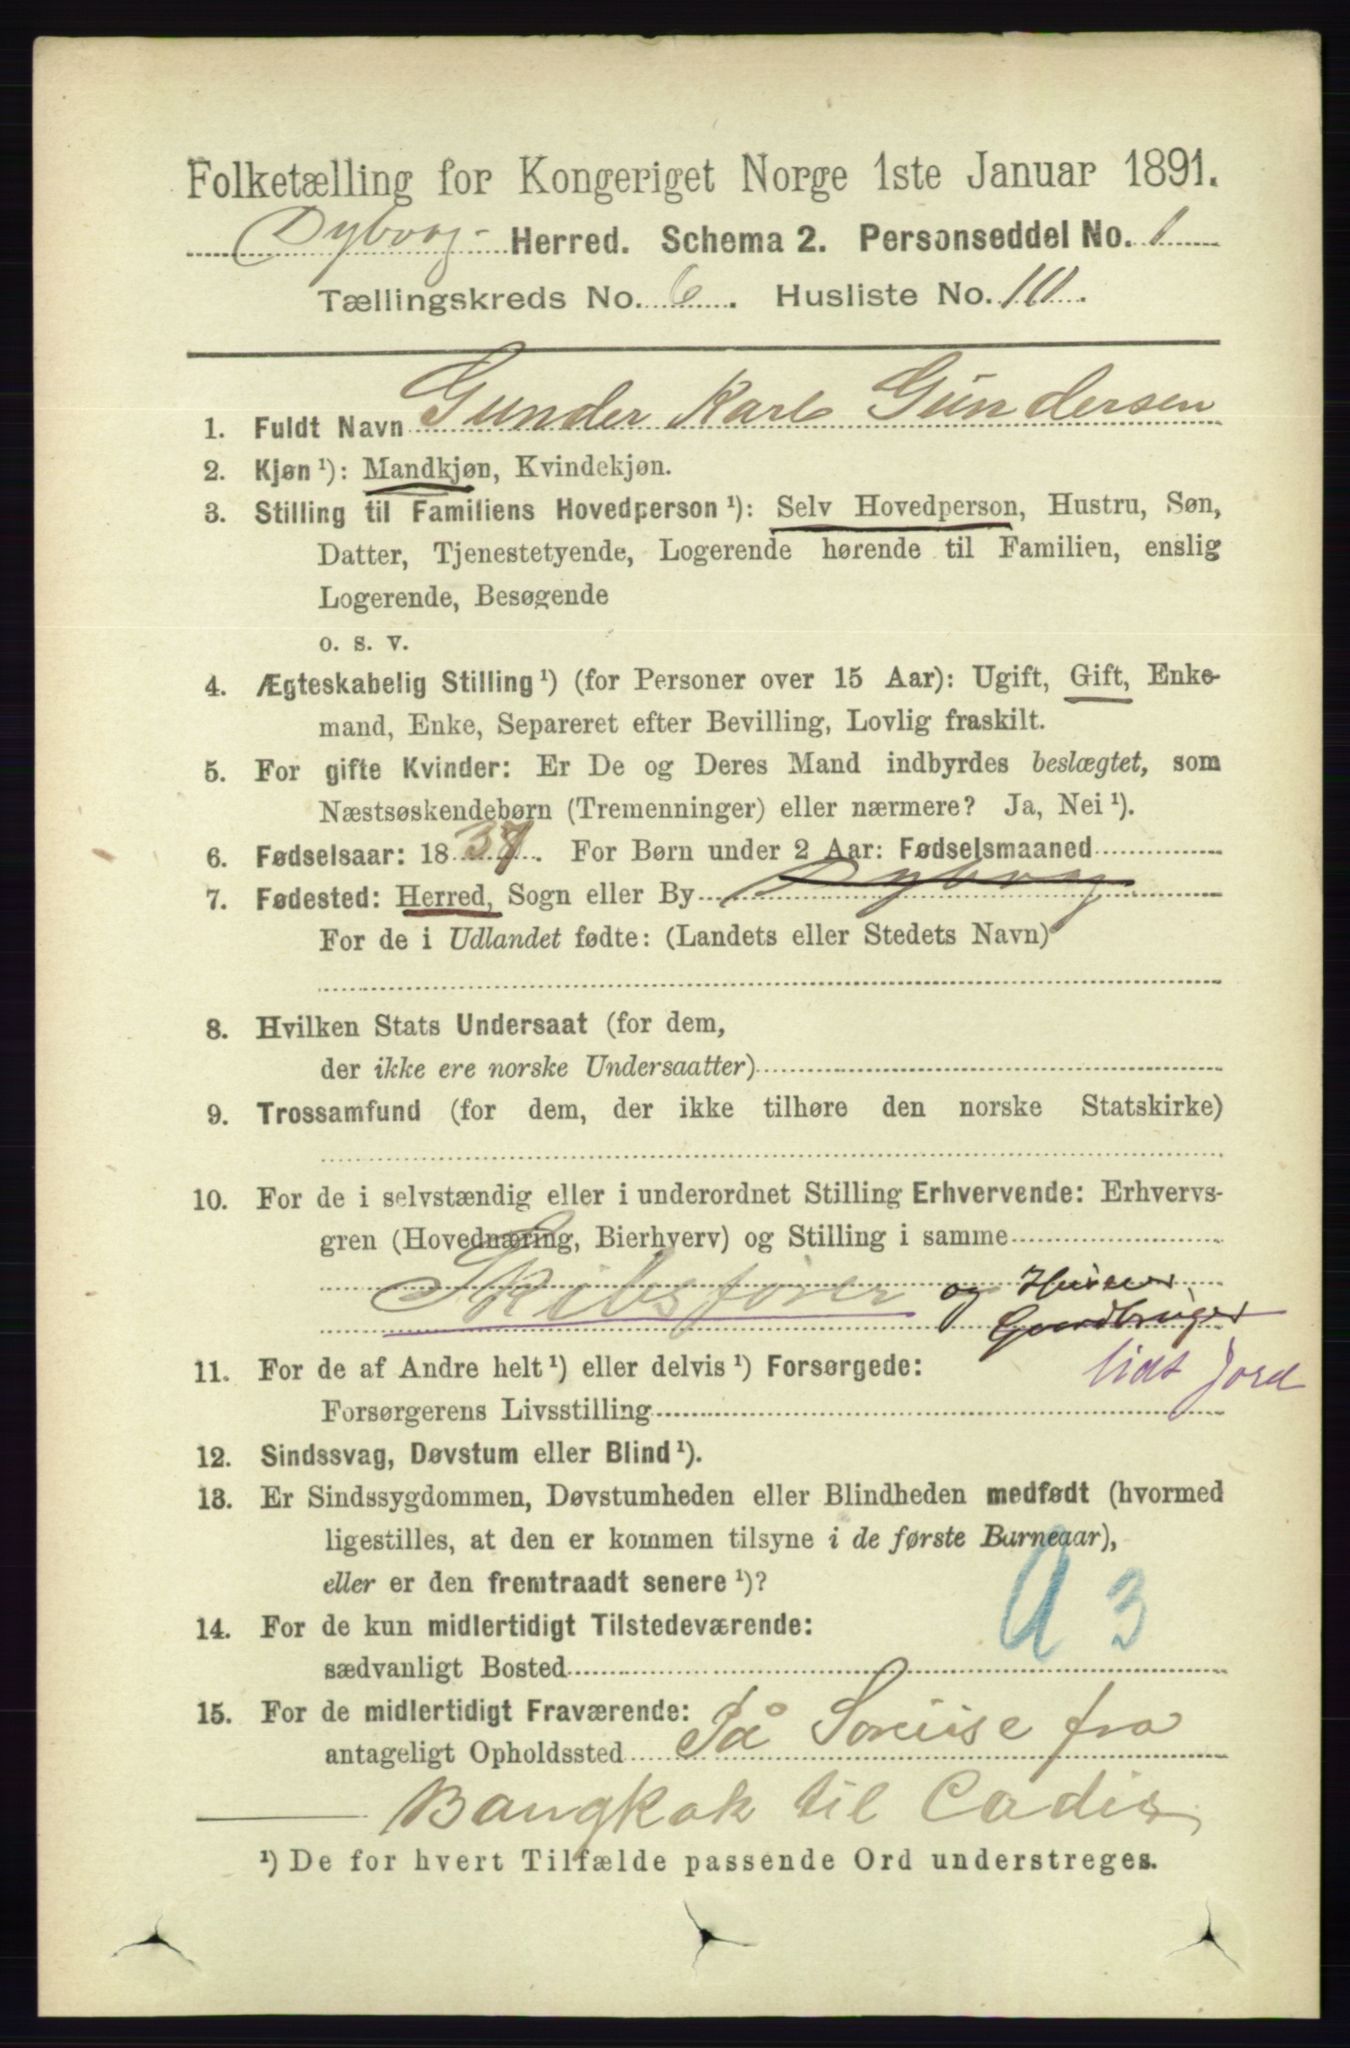 Folketælling for Kongeriget Norge 1ste Januar 1891.
Dybvag Herred. Schema 2. Personseddel No. 1
Tællingskreds No. 6. Husliste No. 10.
1. Fuldt Navn Gunder Karl Gundersen
2. Kjøn ¹): Mandkjøn, Kvindekjøn.
3. Stilling til Familiens Hovedperson ¹): Selv Hovedperson, Hustru, Søn,
Datter, Tjenestetyende, Logerende hørende til Familien, enslig
Logerende, Besøgende
o. s. v.
4. Ægteskabelig Stilling ¹) (for Personer over 15 Aar): Ugift, Gift, Enke-
mand, Enke, Separeret efter Bevilling, Lovlig fraskilt.
5. For gifte Kvinder: Er De og Deres Mand indbyrdes beslægtet, som
Næstsøskendebørn (Tremenninger) eller nærmere? Ja, Nei ¹).
6. Fødselsaar: 1837. For Børn under 2 Aar: Fødselsmaaned
7. Fødested: Herred, Sogn eller By Dybvag
For de i Udlandet fødte: (Landets eller Stedets Navn)
8. Hvilken Stats Undersaat (for dem,
der ikke ere norske Undersaatter)
9. Trossamfund (for dem, der ikke tilhøre den norske Statskirke)
10. For de i selvstændig eller i underordnet Stilling Erhvervende: Erhvervs-
gren (Hovednæring, Bierhverv) og Stilling i samme
Skibsfører og Huseier
Gaardbruger
lidt Jord
11. For de af Andre helt ¹) eller delvis ¹) Forsørgede:
Forsørgerens Livsstilling
12. Sindssvag, Døvstum eller Blind ¹).
13. Er Sindssygdommen, Døvstumheden eller Blindheden medfødt (hvormed
ligestilles, at den er kommen tilsyne i de første Barneaar),
eller er den fremtraadt senere ¹)?
a 3
14. For de kun midlertidigt Tilstedeværende:
sædvanligt Bosted
15. For de midlertidigt Fraværende:
antageligt Opholdssted På fra
Bangkok til Cadis
¹) De for hvert Tilfælde passende Ord understreges.